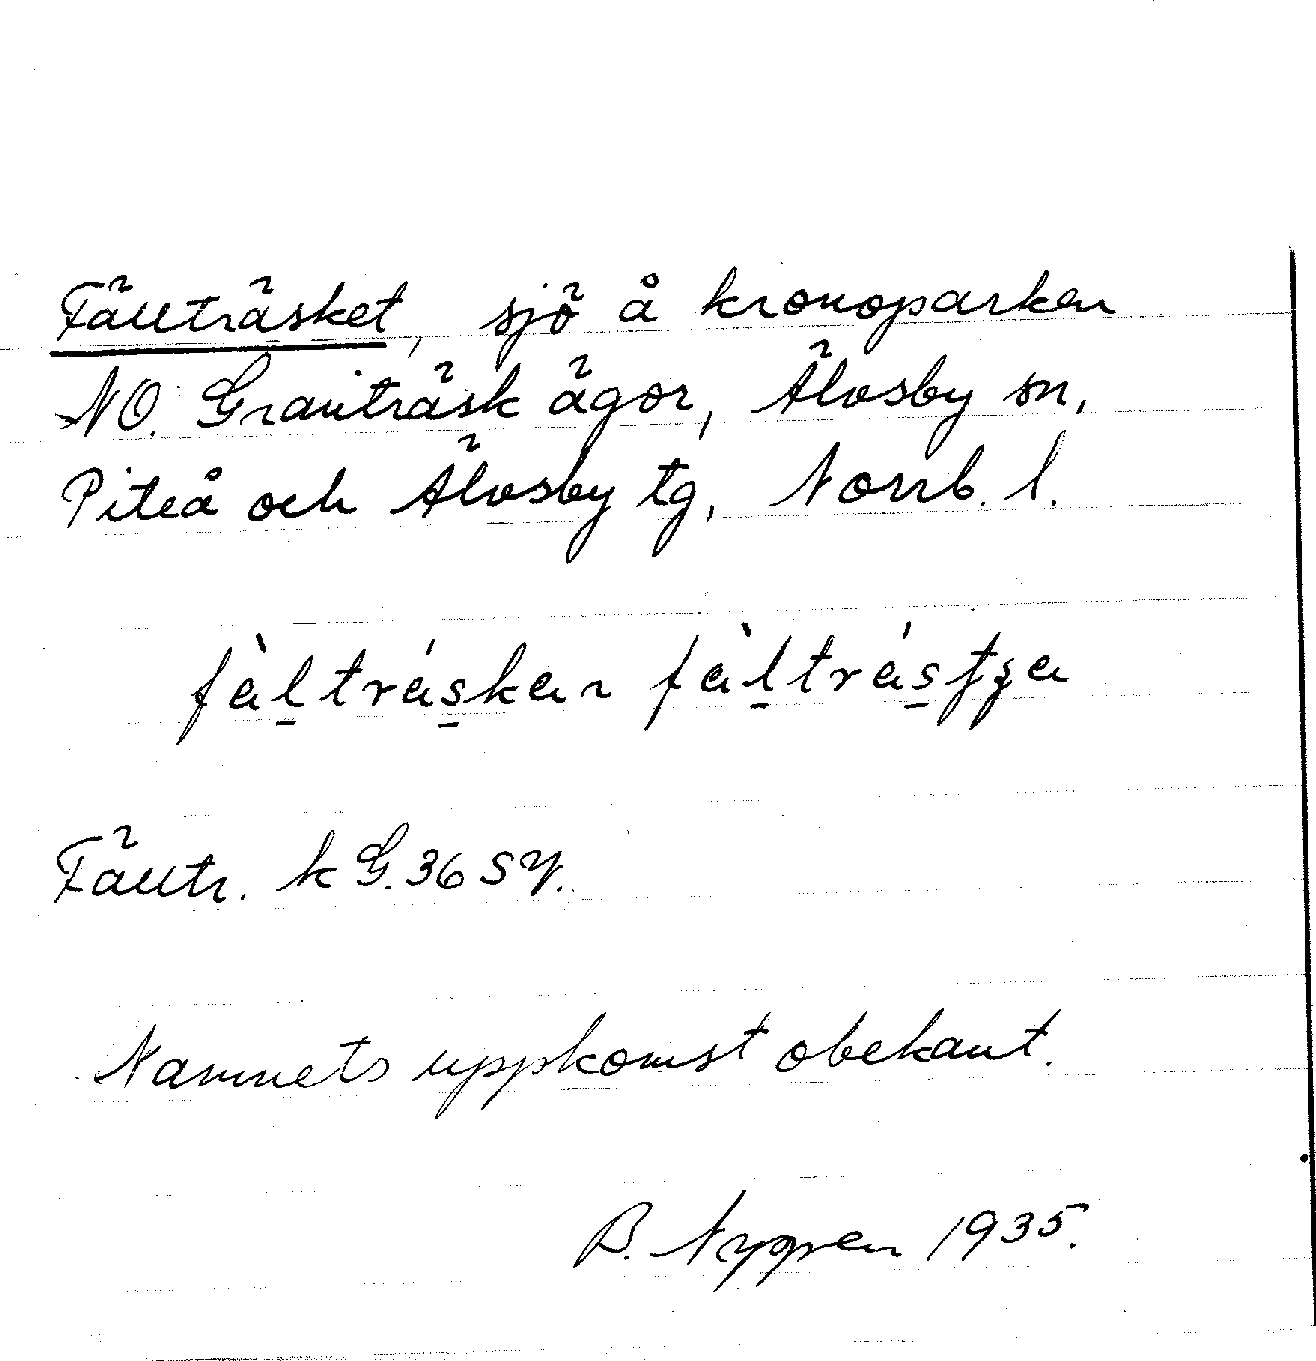 Fällträsket, sjö å kronoparken
NO. Granträsk ägor, Älvsby sn,
Piteå och Älvsby tg, Norrb. l.
fàl̠trás̠kan fàl̠trás̠tʒa
Fälltr. k G. 36 SY.
Namnets uppkomst obekant.
B. Nygren 1935.